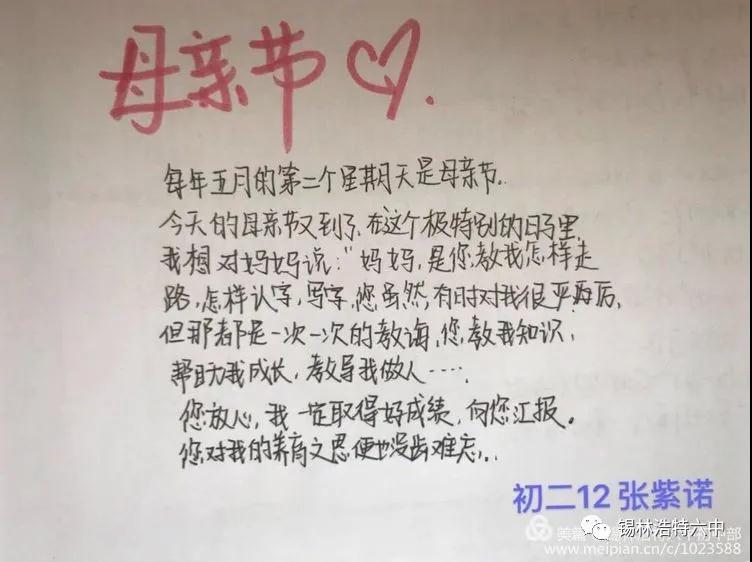 母亲节♡.
每年五月的第二个星期天是母亲节..
今天的母亲节又到了,在这个极特别的日子里
我想对妈妈说:"妈妈,是您教我怎样走
路,怎样认字,写字,您虽然,有时对我很严厉,
但那都是一次一次的教诲,您教我知识,
帮助我成长,教导我做人……
您放心,我一定取得好成绩,向您汇报。
您对我的养育之恩便也没齿难忘...
初二12 张紫诺
锡林浩特六中
美篇 初中部
www.meipian.cn/c/1023588